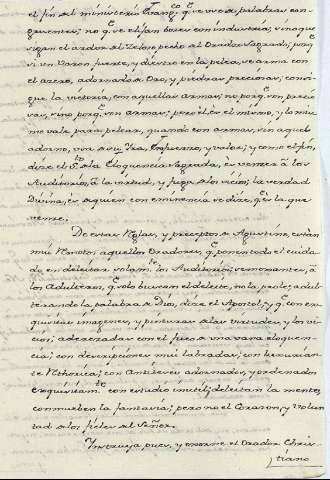 el fin al ministerio
que vse a palabras con-
gruentes; no q.e elijan bozes con industria, sino q.e
sigan el ardor al Zeloso pecho al Orador Sagrado, porq.
si un Varon fuerte, y diestro en la pelea, se arma con
el azero, adornado de Oro, y piedras preciosas, consi-
gue la victoria, con aquellas armas; no porq. son precio-
sas, sino porq. son armas; pero el, es el mismo, y lo mis-
mo vale para pelear, quando con armas, sin aquel
adorno, usa su Ira, y valor; y como el fin,
dize el S.to de la Eloquencia Sagrada, es vencer a los
Auditorios, a la virtud, y fuga de los vicios; la verdad
Divina, es a quien con eminencia se dize, q. es la que
vence.
De estas Reglas, y preceptos de Agustino, están
mui Remotos aquellos Oradores, q. ponen todo el cuida-
do en deleitar solam.te los Auditorios; semejantes, a
los Adulteros, q. solo buscan el deleite, no la prole; adul-
terando la palabra de Dios, dize el Apostol, y q. con ex-
quisitas imagenes, y pinturas de las virtudes, y los vi-
cios; aderezadas con el fuco de una vana eloquen-
cia; con descripciones mui labradas; con luxurian-
te Rethorica; con Antitesis adornados, y ordenados
exquisitam.te con estudio inutil, deleitan la mente,
conmueben la fantasia; pero no el Corazon, y Volun-
tad de los fieles al Señor.
Instruya pues, y enseñe el Orador Chris-
tiano